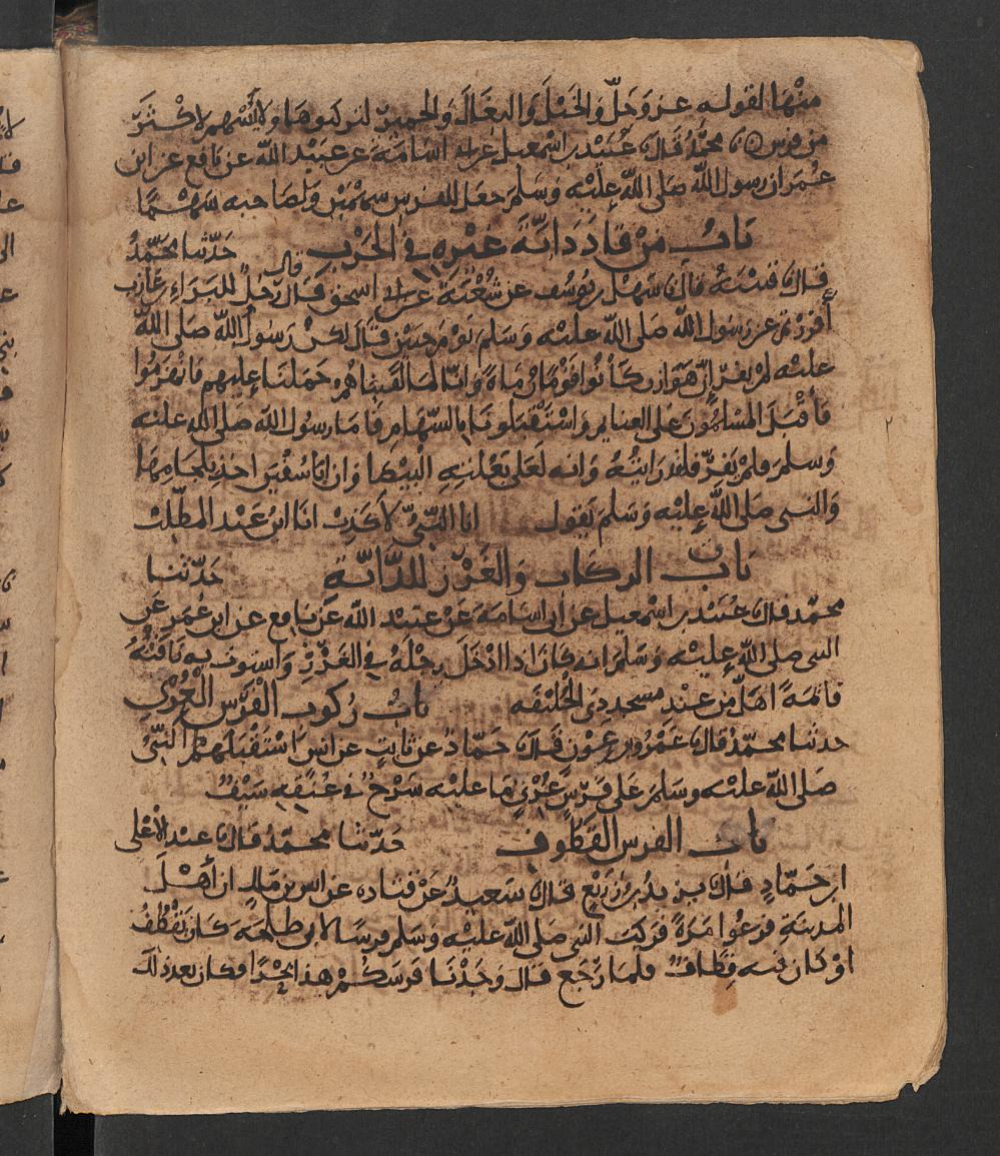 منها لقوله عز وجل والخيل والبغال والحمير لتركبوها ولا يسهم لاكثر
من فرس ن محمد قال نا عبيد بن اسمعيل عن ابي اسامة عن عبيد الله عن نافع عن ابن
عمر ان رسول الله صلى الله عليه وسلم جعل للفرس سهمين ولصاحبه سهما
باب من قاد دابة غيره في الحرب حدثنا محمد
قال نا قتيبة قال نا سهل بن يوسف عن شعبة عن ابي اسحق قال قال رجل للبراء بن عازب
أفررتم عن رسول الله صلى الله عليه وسلم يوم حنين قال لكن رسول الله صلى الله
عليه لم يفر ان هوازن كانوا قوما رماة وانا لما لقيناهم حملنا عليهم فانهزموا
فأقبل المسلمون على الغنايم واستقبلونا بالسهام فاما رسول الله صلى الله عليه
وسلم فلم يفر فلقد رايته وانه لعلى بغلته البيضا وان ابا سفين اخذ بلجامها
والنبي صلى الله عليه وسلم يقول انا النبي لا كذب انا ابن عبد المطلب
باب الركاب والغرز للدابة حدثنا
محمد قال نا عبيد بن اسمعيل عن ابي اسامة عن عبيد الله عن نافع عن ابن عمر عن
النبي صلى الله عليه وسلم انه كان اذا ادخل رجله في الغرز واستوت به ناقته
قائمة اهل من عند مسجد ذي الحليفه باب ركوب الفرس العري
حدثنا محمد قال نا عمرو بن عون قال نا حماد عن ثابت عن انس استقبلهم النبي
صلى الله عليه وسلم على فرس عري ما عليه سرج في عنقه سيف
باب الفرس القطوف حدثنا محمد قال نا عبد الاعلى
ابن حماد قال نا يزيد بن زريع قال نا سعيد عن قتاده عن انس بن مالك ان أهل
المدينة فزعوا مرة فركب النبي صلى الله عليه وسلم فرسا لابي طلحة كان يقطف
او كان فيه قطاف فلما رجع قال وجدنا فرسكم هذا بحرا فكان بعد ذلك